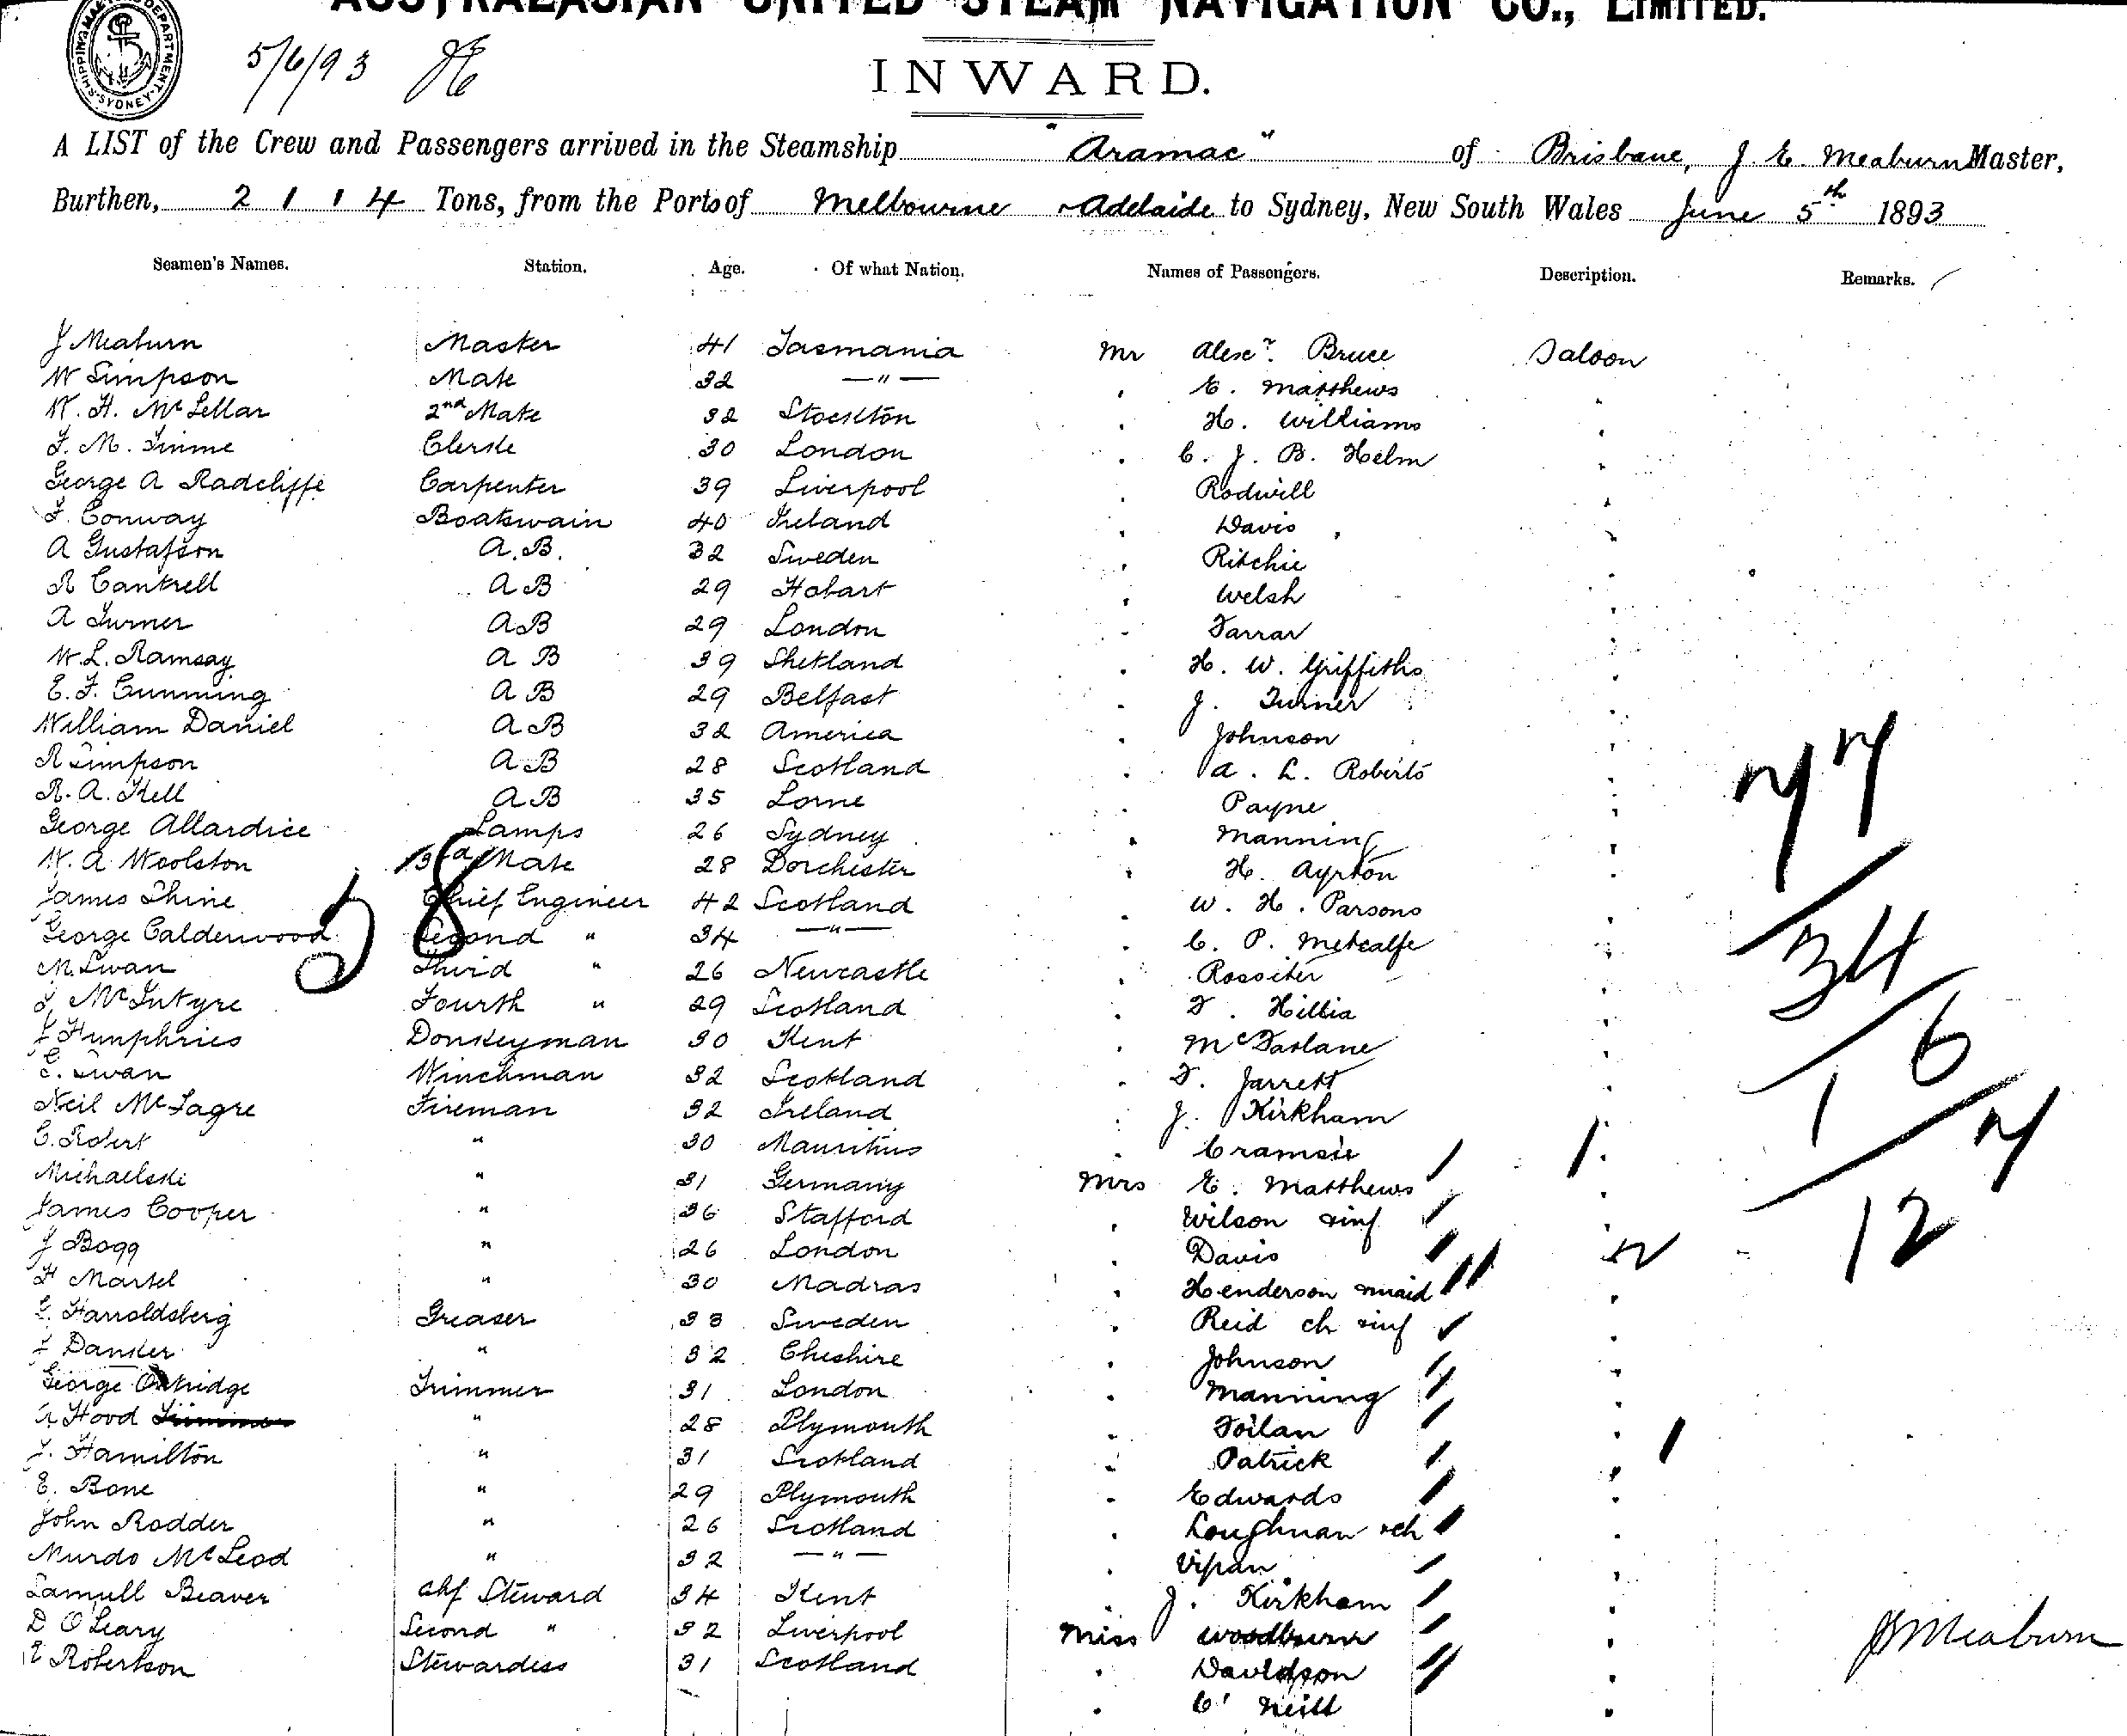 AUSTRALASIAN UNITED STEAM NAVIGATION CO., LIMITED.
SHIPPING MASTER'S DEPARTMENT SYDNEY
5/6/93
INWARD.
A LIST of the Crew and Passengers arrived in the Steamship "Aramac" of Brisbane, J. E. Meaburn Master,
Burthen, 2114 Tons, from the Ports of Melbourne & Adelaide to Sydney, New South Wales June 5th 1893
Seamen's Names. Station. Age. Of what Nation. Names of Passengers. Description. Remarks.
J Meaburn Master 41 Tasmania Mr Alexr. Bruce Saloon
W Simpson Mate 32 —"— E. Matthews
W. H. McLellar 2nd Mate 32 Stockton H. Williams
F. M. Clerk 30 London C. J. B. Helm
George A Radcliffe Carpenter 39 Liverpool Rodwill
F. Conway Boatswain 40 Ireland Davis
A Gustafson A.B. 32 Sweden Ritchie
R Cantrell AB 29 Hobart Welsh
A Turner AB 29 London Farrar
W. L. Ramsay AB 39 Shetland H. W. Griffiths
E. F. Cumming AB 29 Belfast J. Turner
William Daniel AB 32 America Johnson
R Simpson AB 28 Scotland A. L. Roberts
R. A. Kell AB 35 Lorne Payne
George Allardice Lamps 26 Sydney Manning
W. A. Woolston 3rd Mate 28 Dorchester H. Ayrton
James Shine Chief Engineer 42 Scotland W. H. Parsons
George Calderwood Second " 34 —"— C. P. Metcalfe
M. Swan Third " 26 Newcastle Rossiter
J McIntyre Fourth " 29 Scotland F. Hillia
J Humphries Donkeyman 30 Kent McFarlane
C. Swan Winchman 32 Scotland F. Jarrett
Neil McTagre Fireman 32 Ireland J. Kirkham
C. Robert " 30 Mauritius Cramsie
Michaelski " 31 Germany Mrs E. Matthews
James Cooper " 36 Stafford Wilson & inf
J Bogg " 26 London Davis
H Martel " 30 Madras Henderson & maid
C. Harroldsberg Greaser 33 Sweden Reid ch & inf
J Danker " 32 Cheshire Johnson
George Oatridge Trimmer 31 London Manning
A Hood Trimmer " 28 Plymouth Foilan
J. Hamilton " 31 Scotland Patrick
E. Bone " 29 Plymouth Edwards
John Rodder " 26 Scotland Loughnan & ch
Murdo McLeod " 32 —"— Vipan
Samuell Beaver chf Steward 34 Kent J. Kirkham
D O'Leary Second " 32 Liverpool Miss Woodburn
E Robertson Stewardess 31 Scotland Davidson
O'Neill
58
77
34
6
1
7
12
J E Meaburn